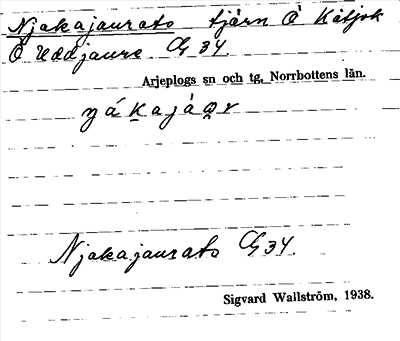 Njakajaurato tjärn Ö Kåtjok
Ö Uddjaure Cg 34
Arjeplogs sn och tg, Norrbottens län.
ŋáḵajáo̭r
Njakajaurato Cg 34.
Sigvard Wallström, 1938.